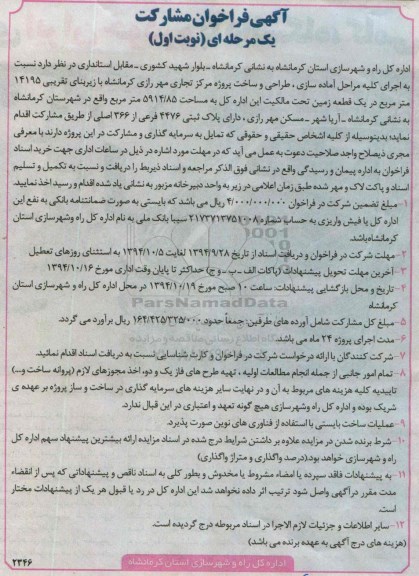 آگهی فراخوان مشارکت
یک مرحله ای (نوبت اول)
اداره کل راه و شهرسازی استان کرمانشاه به نشانی کرمانشاه ـ بلوار شهید کشوری ـ مقابل استانداری در نظر دارد نسبت
به اجرای کلیه مراحل آماده سازی ، طراحی و ساخت پروژه مرکز تجاری مهر رازی کرمانشاه با زیربنای تقریبی ۱۴۱۹۵
متر مربع در یک قطعه زمین تحت مالکیت این اداره کل به مساحت ۵۹۱۴/۸۵ متر مربع واقع در شهرستان کرمانشاه
به نشانی کرمانشاه ـ آریا شهر ـ مسکن مهر رازی ، دارای پلاک ثبتی ۴۴۷۶ فرعی از ۳۶۶ اصلی از طریق مشارکت اقدام
نماید؛ بدینوسیله از کلیه اشخاص حقیقی و حقوقی که تمایل به سرمایه گذاری و مشارکت در این پروژه دارند با معرفی
مجری ذیصلاح واجد صلاحیت دعوت به عمل می آید که در مهلت مورد اشاره در ذیل در ساعات اداری جهت خرید اسناد
فراخوان به اداره پیمان و رسیدگی واقع در نشانی فوق الذکر مراجعه و اسناد ذیربط را دریافت و نسبت به تکمیل و تسلیم
اسناد و پاکت لاک و مهر شده طبق زمان اعلامی در زیر به واحد دبیرخانه مزبور به نشانی یاد شده اقدام و رسید اخذ نمایید.
۱ـ مبلغ تضمین شرکت در فراخوان ۴/۰۰۰/۰۰۰/۰۰۰ ریال می باشد که بایستی به صورت ضمانتنامه بانکی به نفع این
اداره کل یا فیش واریزی به حساب شماره ۲۱۷۳۷۱۳۷۵۱۰۰۸ سیبا بانک ملی به نام اداره کل راه وشهرسازی استان
کرمانشاه باشد.
۲ـ مهلت شرکت در فراخوان و دریافت اسناد از تاریخ ۱۳۹۴/۹/۲۸ لغایت ۱۳۹۴/۱۰/۵ به استثنای روزهای تعطیل
۳ـ آخرین مهلت تحویل پیشنهادات (پاکات الف ـ ب ـ و ج) حداکثر تا پایان وقت اداری مورخ ۱۳۹۴/۱۰/۱۶
۴ـ تاریخ و محل بازگشایی پیشنهادات: ساعت ۱۰ صبح مورخ ۱۳۹۴/۱۰/۱۹ در محل اداره کل راه و شهرسازی استان
کرمانشاه
۵ـ مبلغ کل مشارکت شامل آورده های طرفین: جمعاً حدود ۱۶۴/۴۲۵/۳۲۵/۰۰۰ ریال برآورد می گردد.
۶ـ مدت اجرای پروژه ۲۴ ماه می باشد.
۷ـ شرکت کنندگان با ارائه درخواست شرکت در فراخوان و کارت شناسایی نسبت به دریافت اسناد اقدام نمائید.
۸ـ تمام امور جانبی از جمله انجام مطالعات اولیه ، تهیه طرح های فاز یک و دو، اخذ مجوزهای لازم (پروانه ساخت و...)
تاییدیه کلیه هزینه های مربوط به آن و در نهایت سایر هزینه های سرمایه گذاری در ساخت و ساز پروژه بر عهده ی
شریک بوده و اداره کل راه وشهرسازی هیچ گونه تعهد و اعتباری در این قبال ندارد.
۹ـ عملیات ساخت بایستی با استفاده از فناوری های نوین صورت پذیرد.
۱۰ـ شرط برنده شدن در مزایده علاوه بر داشتن شرایط درج شده در اسناد مزایده ارائه بیشترین پیشنهاد سهم اداره کل
راه و شهرسازی خواهد بود.(درصد واگذاری و متراژ واگذاری)
۱۱ـ به پیشنهادات فاقد سپرده یا امضاء مشروط یا مخدوش و بطور کلی به اسناد ناقص و پیشنهاداتی که پس از انقضاء
مدت مقرر درآگهی واصل شود ترتیب اثر داده نخواهد شد این اداره کل در رد یا قبول هر یک از پیشنهادات مختار
است.
۱۲ـ سایر اطلاعات و جزئیات لازم الاجرا در اسناد مربوطه درج گردیده است.
(هزینه های درج آگهی به عهده برنده می باشد)
اداره کل راه و شهرسازی استان کرمانشاه
۲۳۴۶
ParsNamadData